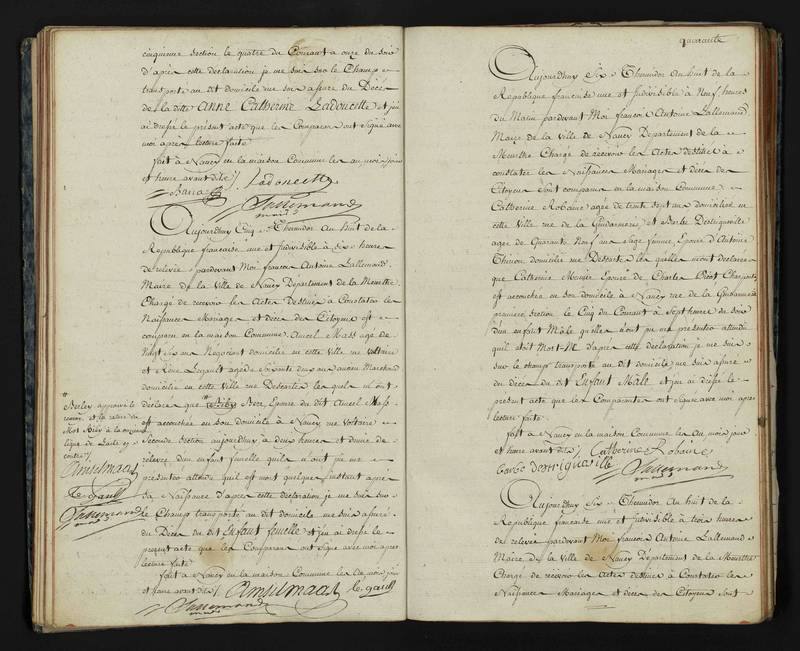 cinquieme section le quatre du Courant a onze du soir
d'après cette declaration je me suis sur le Champ
transporte au dit domicile me suis assure du Décé
de la ditte Anne Catherine Ladoucette et j'en
ai dressé le présent acte que les Comparan ont signé avec
moi après lecture faite
fait à Nancy en la maison Commune les an moi jour
et heure avant dite
Ladoucette
Lallemand
maire
Aujourdhuy Cinq Thermidor An huit de la
République francaise une et Indivisible à six heures
de relevée pardevant Moi francois Antoine Lallemand
Maire de la Ville de Nancy Département de la Meurthe
Chargé de recevoir les Actes Destinés à Constater les
Naissances Mariages et décès des Citoyens est
comparu en la maison Commune Ancel Mass agé de
Vingt six ans Negociant domicilié en cette Ville rue Voltaire
et Rene Legault agé de soixante deux ans ancien Marchand
domicilié en cette Ville rue Descartes lesquels m'ont
déclaré que Beer, Epouse du dit Ancel Mass
est accouchée en son domicile à Nancy rue Voltaire
Seconde Section aujourdhuy à deux heures et demie de
relevée d'un enfant femelle quils n'ont pu me
presenter attendu quil est mort quelques instant apres
sa Naissance d'apres cette déclaration je me suis sur
le Champ transporté au dit domicile me suis assuré
du Décès du dit Enfant femelle et j'en ai dressé le
present acte que les Comparan ont signé avec moi apres
lecture faite
fait à Nancy en la maison Commune les an moi jour
et heure avant dite Amselmaas le gault
Lallemand
maire
approuvé le
renvoi et la rature du
Mot
Amselmaas
le gault
Lallemand
maire
quarante
Aujourdhuy Six Thermidor An huit de la
République francaise une et Indivisible à Neuf heures
du Matin pardevant Moi francois Antoine Lallemand
Maire de la Ville de Nancy Département de la
Meurthe Chargé de recevoir les Actes destinés à
constater les Naissances Mariages et décès des
Citoyens sont comparus en la maison Commune
Catherine Robaine agée de trente sept ans domiciliée en
cette Ville rue de la Gendarmerie et Barbe Destriqueville
agée de Quarante Neuf ans Sage femme Epouse d'Antoine
Thirion domiciliée rue Descartes lesquelles m'ont déclarée
que Catherine Epouse de Charles Picot Charpentier
est accouchée en son domicile à Nancy rue de la Gendarmerie
premiere Section le Cinq du Courant à Sept heures du soir
d'un enfant Mâle quelles n'ont pu me presenter attendu
quil etoit Mort-Né d'apres cette déclaration je me suis
sur le champ transporté au dit domicile me suis assuré
du décès du dit Enfant Mâle et j'en ai dressé le
present acte que les Comparantes ont signé avec moi apres
lecture faite
fait à Nancy en la maison Commune les An, moi, jour
et heure avant dite Catherine Robaine
barbe destriqueville Lallemand
maire
Aujourdhuy Six Thermidor An huit de la
République francaise une et Indivisible à trois heures
de relevée pardevant Moi francois Antoine Lallemand
Maire de la Ville de Nancy Département de la Meurthe
Chargé de recevoir les Actes destinés à Constater les
Naissances Mariages et décès des Citoyens sont